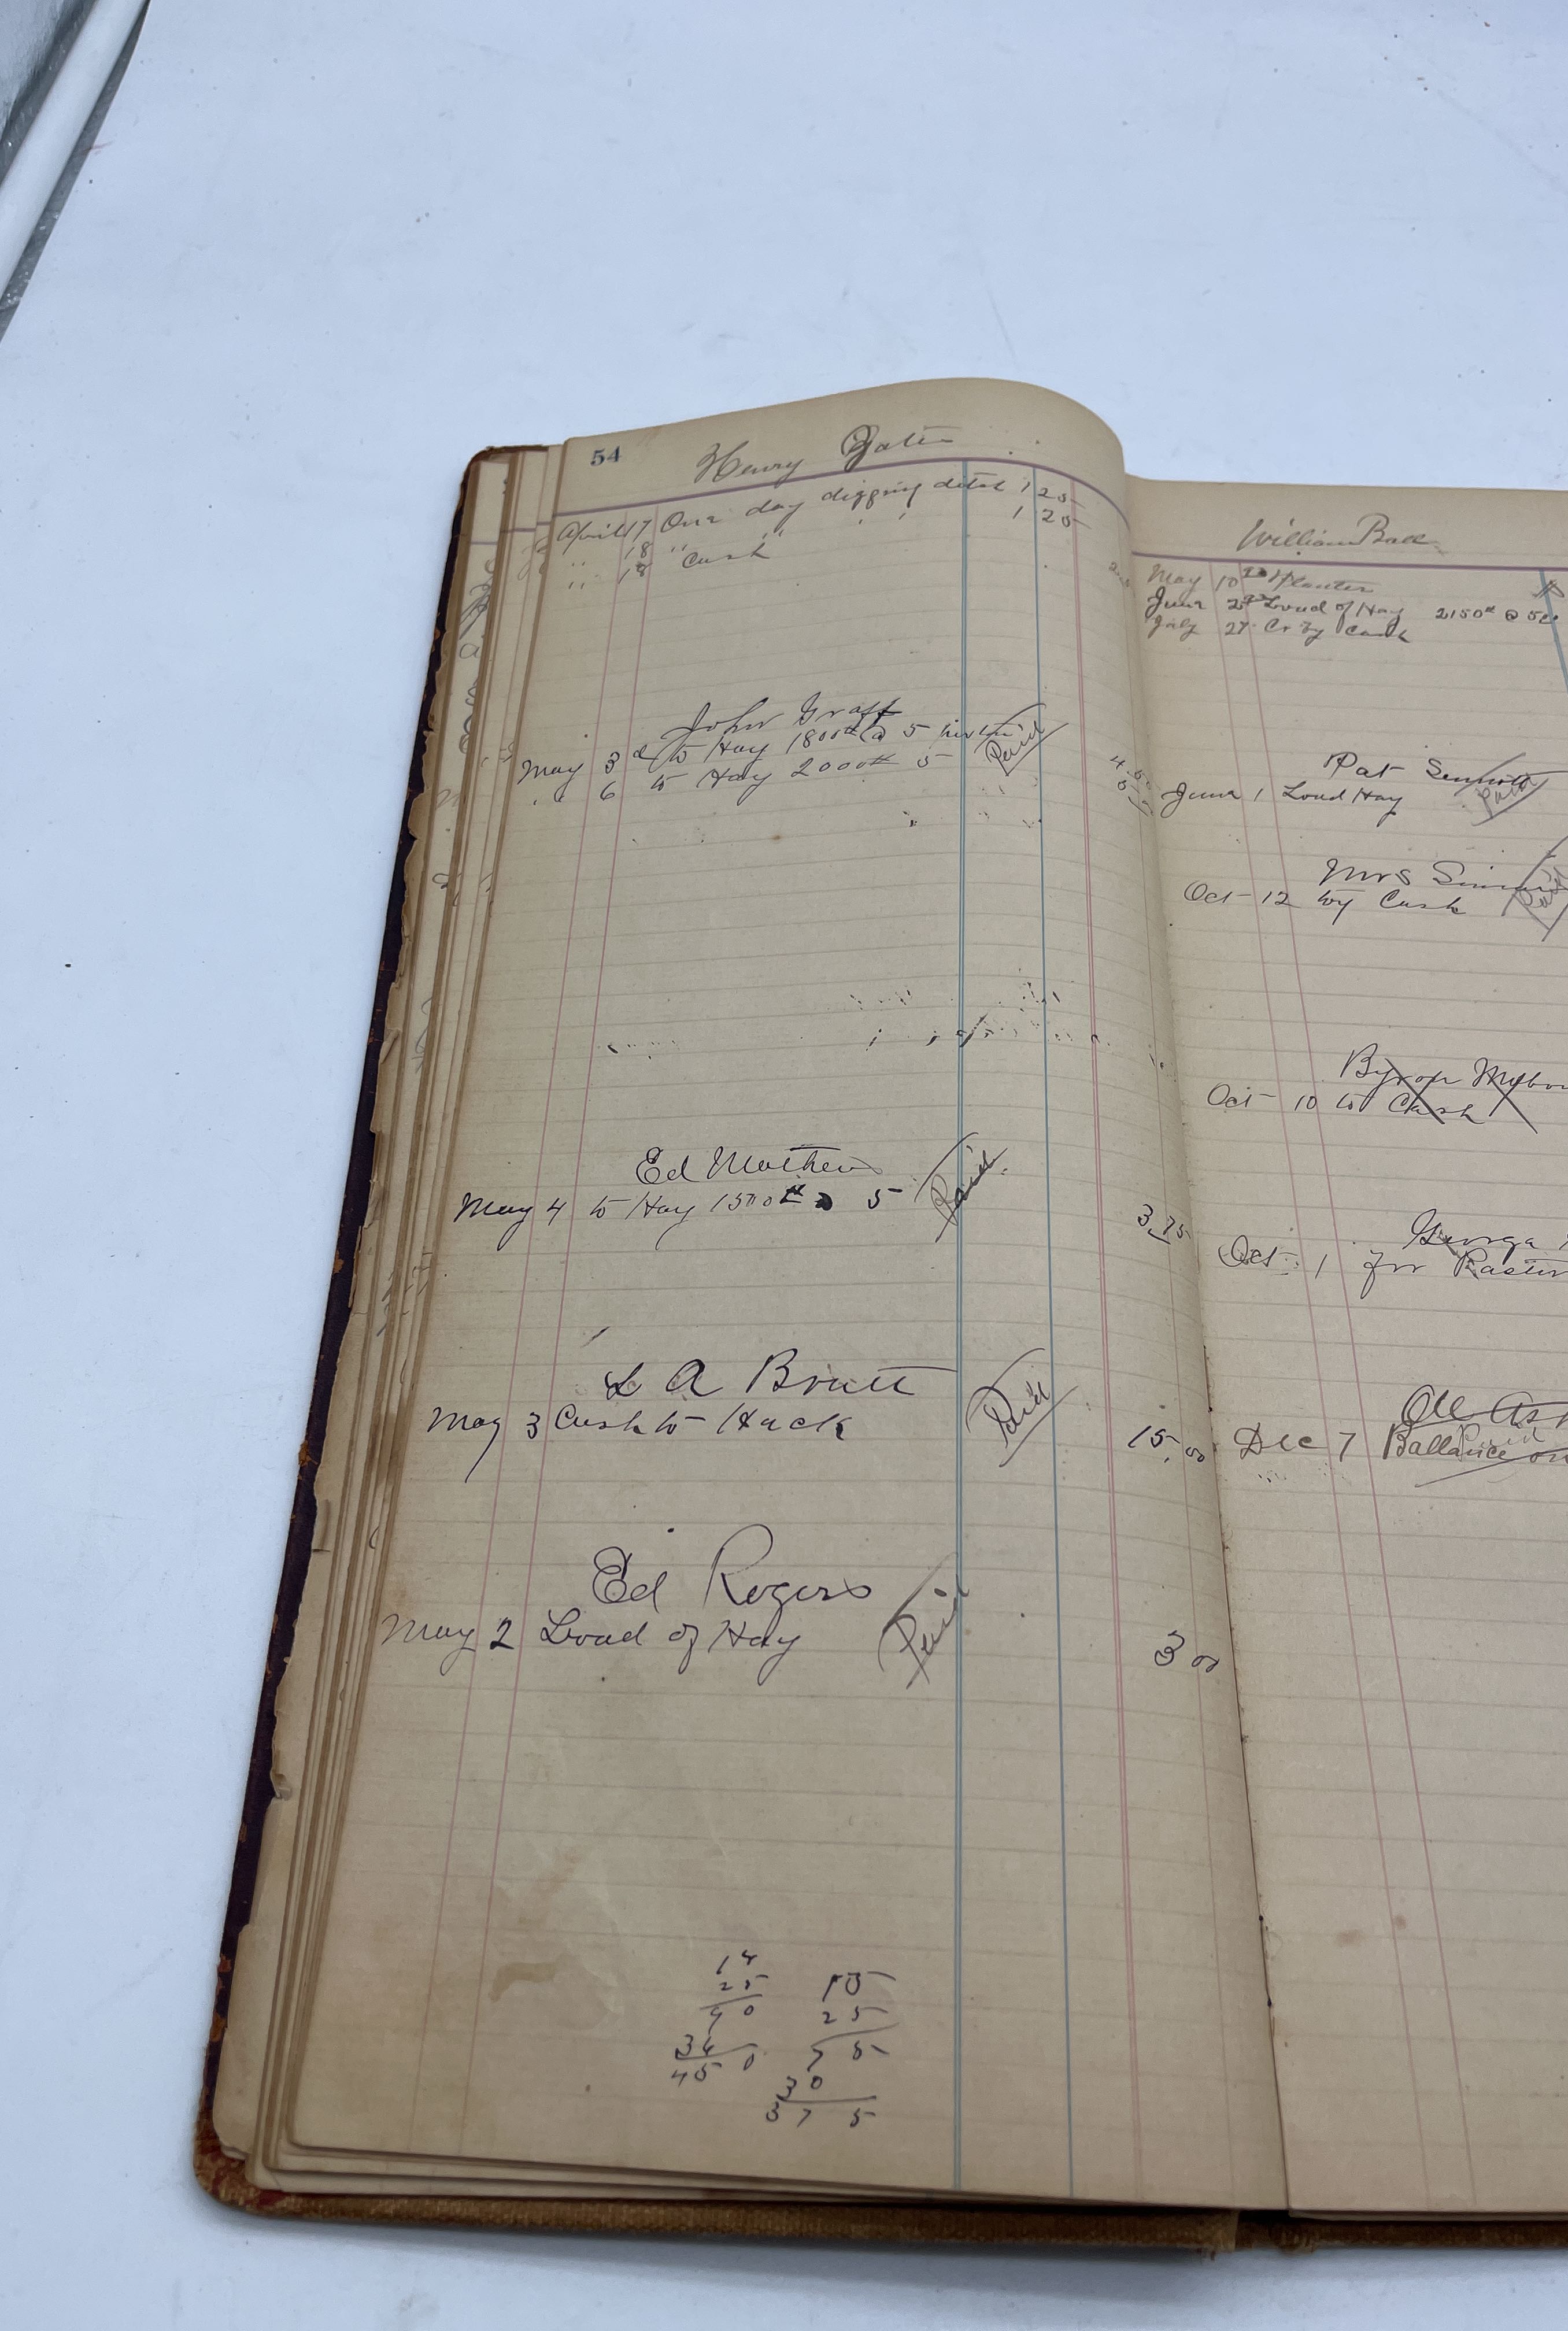 54
Henry
April 17 One day digging 1 25
" 18 " " " " 1 20
" 18 Cash
John Graff
May 3d to Hay 1800# @ 5 Paid 4.50
" " 6 to Hay 2000# 5
Ed Mathews
May 4 to Hay 1500# @ 5 Paid 3.75
L A Bratt
May 3 Cash to Hack Paid 15.00
Ed Rogers
May 2 Load of Hay Paid 3 00
18
25
90
36 0
45 0
15
25
7 5
30
3 7 5
William Ball
May 10 Planter
June 2 Load of Hay 2150# @ 50
July 27 Cr by Cash
Pat Paid
June 1 Load Hay
Mrs Paid
Oct 12 by Cash
Byron
Oct 10 to Cash
George
Oct 1 for
Ole
Dec 7 Ballance on